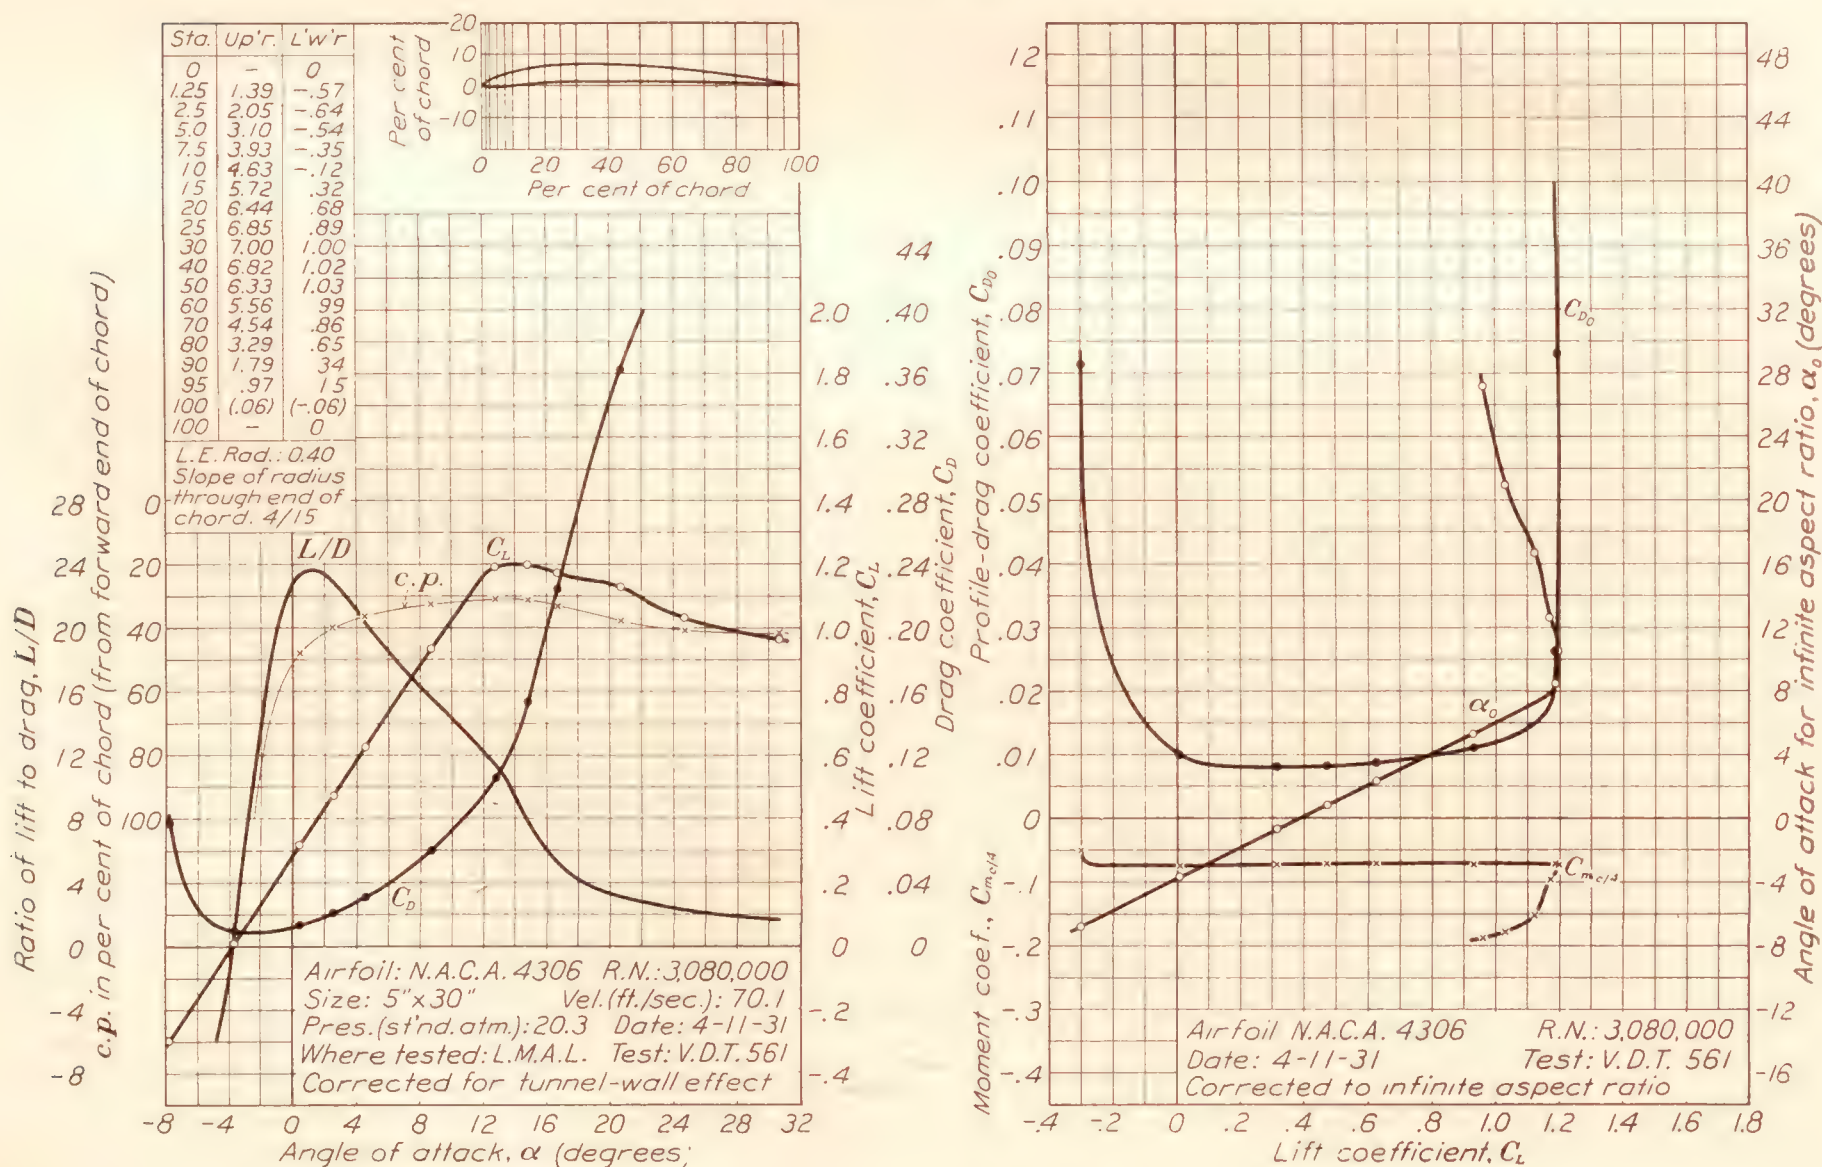 Sta. Up'r. L'w'r
0 – 0
1.25 1.39 -.57
2.5 2.05 -.64
5.0 3.10 -.54
7.5 3.93 -.35
10 4.63 -.12
15 5.72 .32
20 6.44 .68
25 6.85 .89
30 7.00 1.00
40 6.82 1.02
50 6.33 1.03
60 5.56 99
70 4.54 .86
80 3.29 .65
90 1.79 34
95 .97 15
100 (.06) (-.06)
100 – 0
L.E. Rad.: 0.40
Slope of radius
through end of
chord. 4/15
Per cent
of chord
20
10
0
-10
0 20 40 60 80 100
Per cent of chord
Ratio of lift to drag, L/D
28
24
20
16
12
8
4
0
-4
-8
c.p. in per cent of chord (from forward end of chord)
0
20
40
60
80
100
L/D
C_L
c.p.
C_D
44
2.0 .40
1.8 .36
1.6 .32
1.4 .28
1.2 .24
1.0 .20
.8 .16
.6 .12
.4 .08
.2 .04
0 0
-.2
-.4
Lift coefficient, C_L
Drag coefficient, C_D
Airfoil: N.A.C.A. 4306 R.N.: 3,080,000
Size: 5"x30" Vel.(ft./sec.): 70.1
Pres.(st'nd. atm.): 20.3 Date: 4-11-31
Where tested: L.M.A.L. Test: V.D.T. 561
Corrected for tunnel-wall effect
-8 -4 0 4 8 12 16 20 24 28 32
Angle of attack, α (degrees;
Profile-drag coefficient, C_D0
.12
.11
.10
.09
.08
.07
.06
.05
.04
.03
.02
.01
0
Moment coef., C_mc/4
-.1
-.2
-.3
-.4
C_D0
α_0
C_mc/4
48
44
40
36
32
28
24
20
16
12
8
4
0
-4
-8
-12
-16
Angle of attack for infinite aspect ratio, α_0 (degrees)
Airfoil N.A.C.A. 4306 R.N.: 3,080,000
Date: 4-11-31 Test: V.D.T. 561
Corrected to infinite aspect ratio
-.4 -.2 0 .2 .4 .6 .8 1.0 1.2 1.4 1.6 1.8
Lift coefficient, C_L